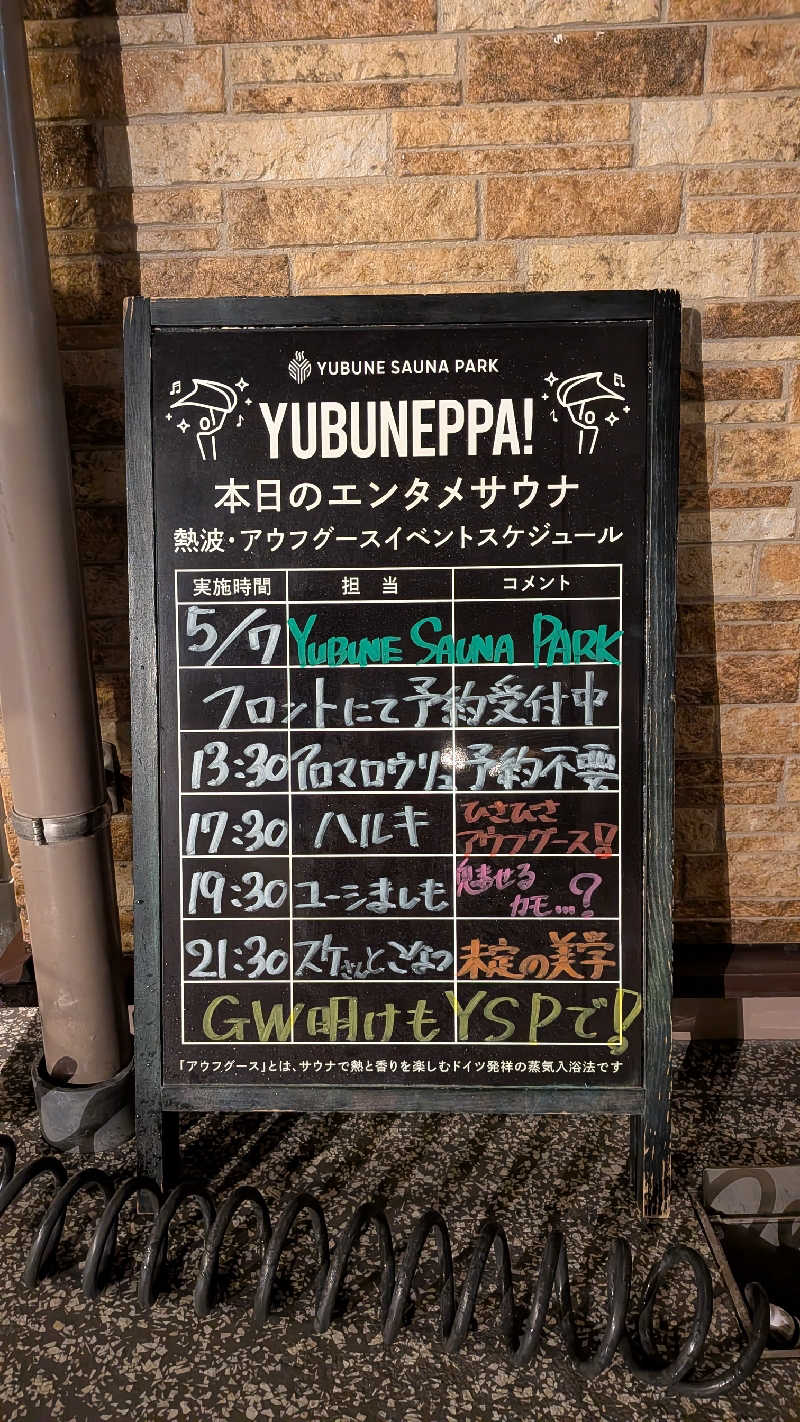 YUBUNE SAUNA PARK
YUBUNEPPA!
本日のエンタメサウナ
熱波・アウフグースイベントスケジュール
実施時間 担当 コメント
5/7 YUBUNE SAUNA PARK
フロントにて予約受付中
13:30 アロマロウリュ 予約不要
17:30 ハルキ ひさひさ
アウフグース!!
19:30 ユーシましも 魅せる
カモ…?
21:30 スケさんとこなつ 未定の美学
GW明けもYSPで!
「アウフグース」とは、サウナで熱と香りを楽しむドイツ発祥の蒸気入浴法です